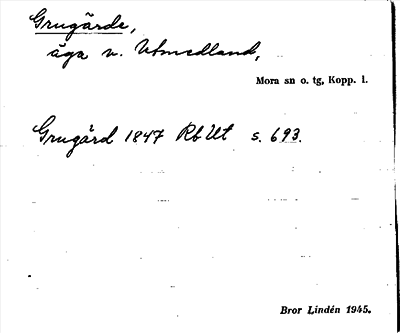 Grugärde,
äga v. Utmedland,
Mora sn o. tg, Kopp. l.
Grugärd 1847 Rb Ut s. 693.
Bror Lindén 1945.